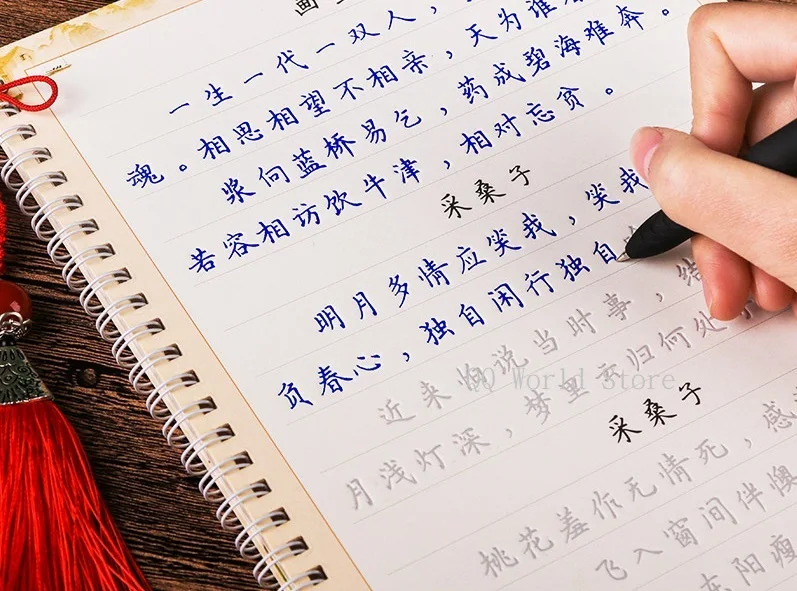 画
一生一代一双人，
相思相望不相亲，天为谁春
浆向蓝桥易乞，药成碧海难奔。
魂。
若容相访饮牛津，相对忘贫。
采桑子
明月多情应笑我，笑我
负春心，独自闲行独自
近来怕说当时事，结
月浅灯深，梦里云归何处
QQ World Store
采桑子
桃花羞作无情死，感
飞入窗间伴懊
东阳瘦